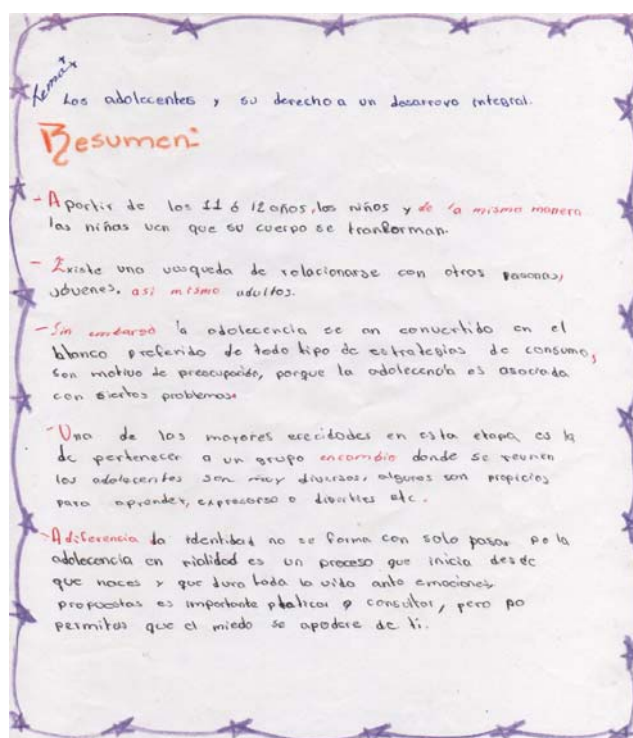 Tema
Los adolecentes y su derecho a un desarroyo integral.
Resumen:
- A partir de los 11 ó 12 años, los niños y de la misma manera
las niñas ven que su cuerpo se tranforman.
- Existe una vusqueda de relacionarse con otras
jóvenes, asi mismo adultos.
- Sin embargo la adolecencia se an convertido en el
blanco preferido de todo tipo de estrategias de consumo,
son motivo de preocupación, porque la adolecencia es asociada
con siertos problemas.
- Una de las mayores en esta etapa es la
de pertenecer a un grupo encambio donde se reunen
los adolecentes son muy diversos, algunos son propicios
para aprender, o etc.
- A diferencia la identidad no se forma con solo pasar la
adolecencia en rialidad es un proceso que inicia
que naces y que dura toda la vida ante emociones
propuestas es importante platicar o consultar, pero no
permitas que el miedo se apodere de ti.